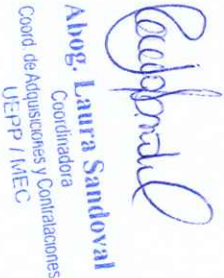 Abog. Laura Sandoval
Coordinadora
Coord. de Adquisiciones y Contrataciones
UEPP / MEC